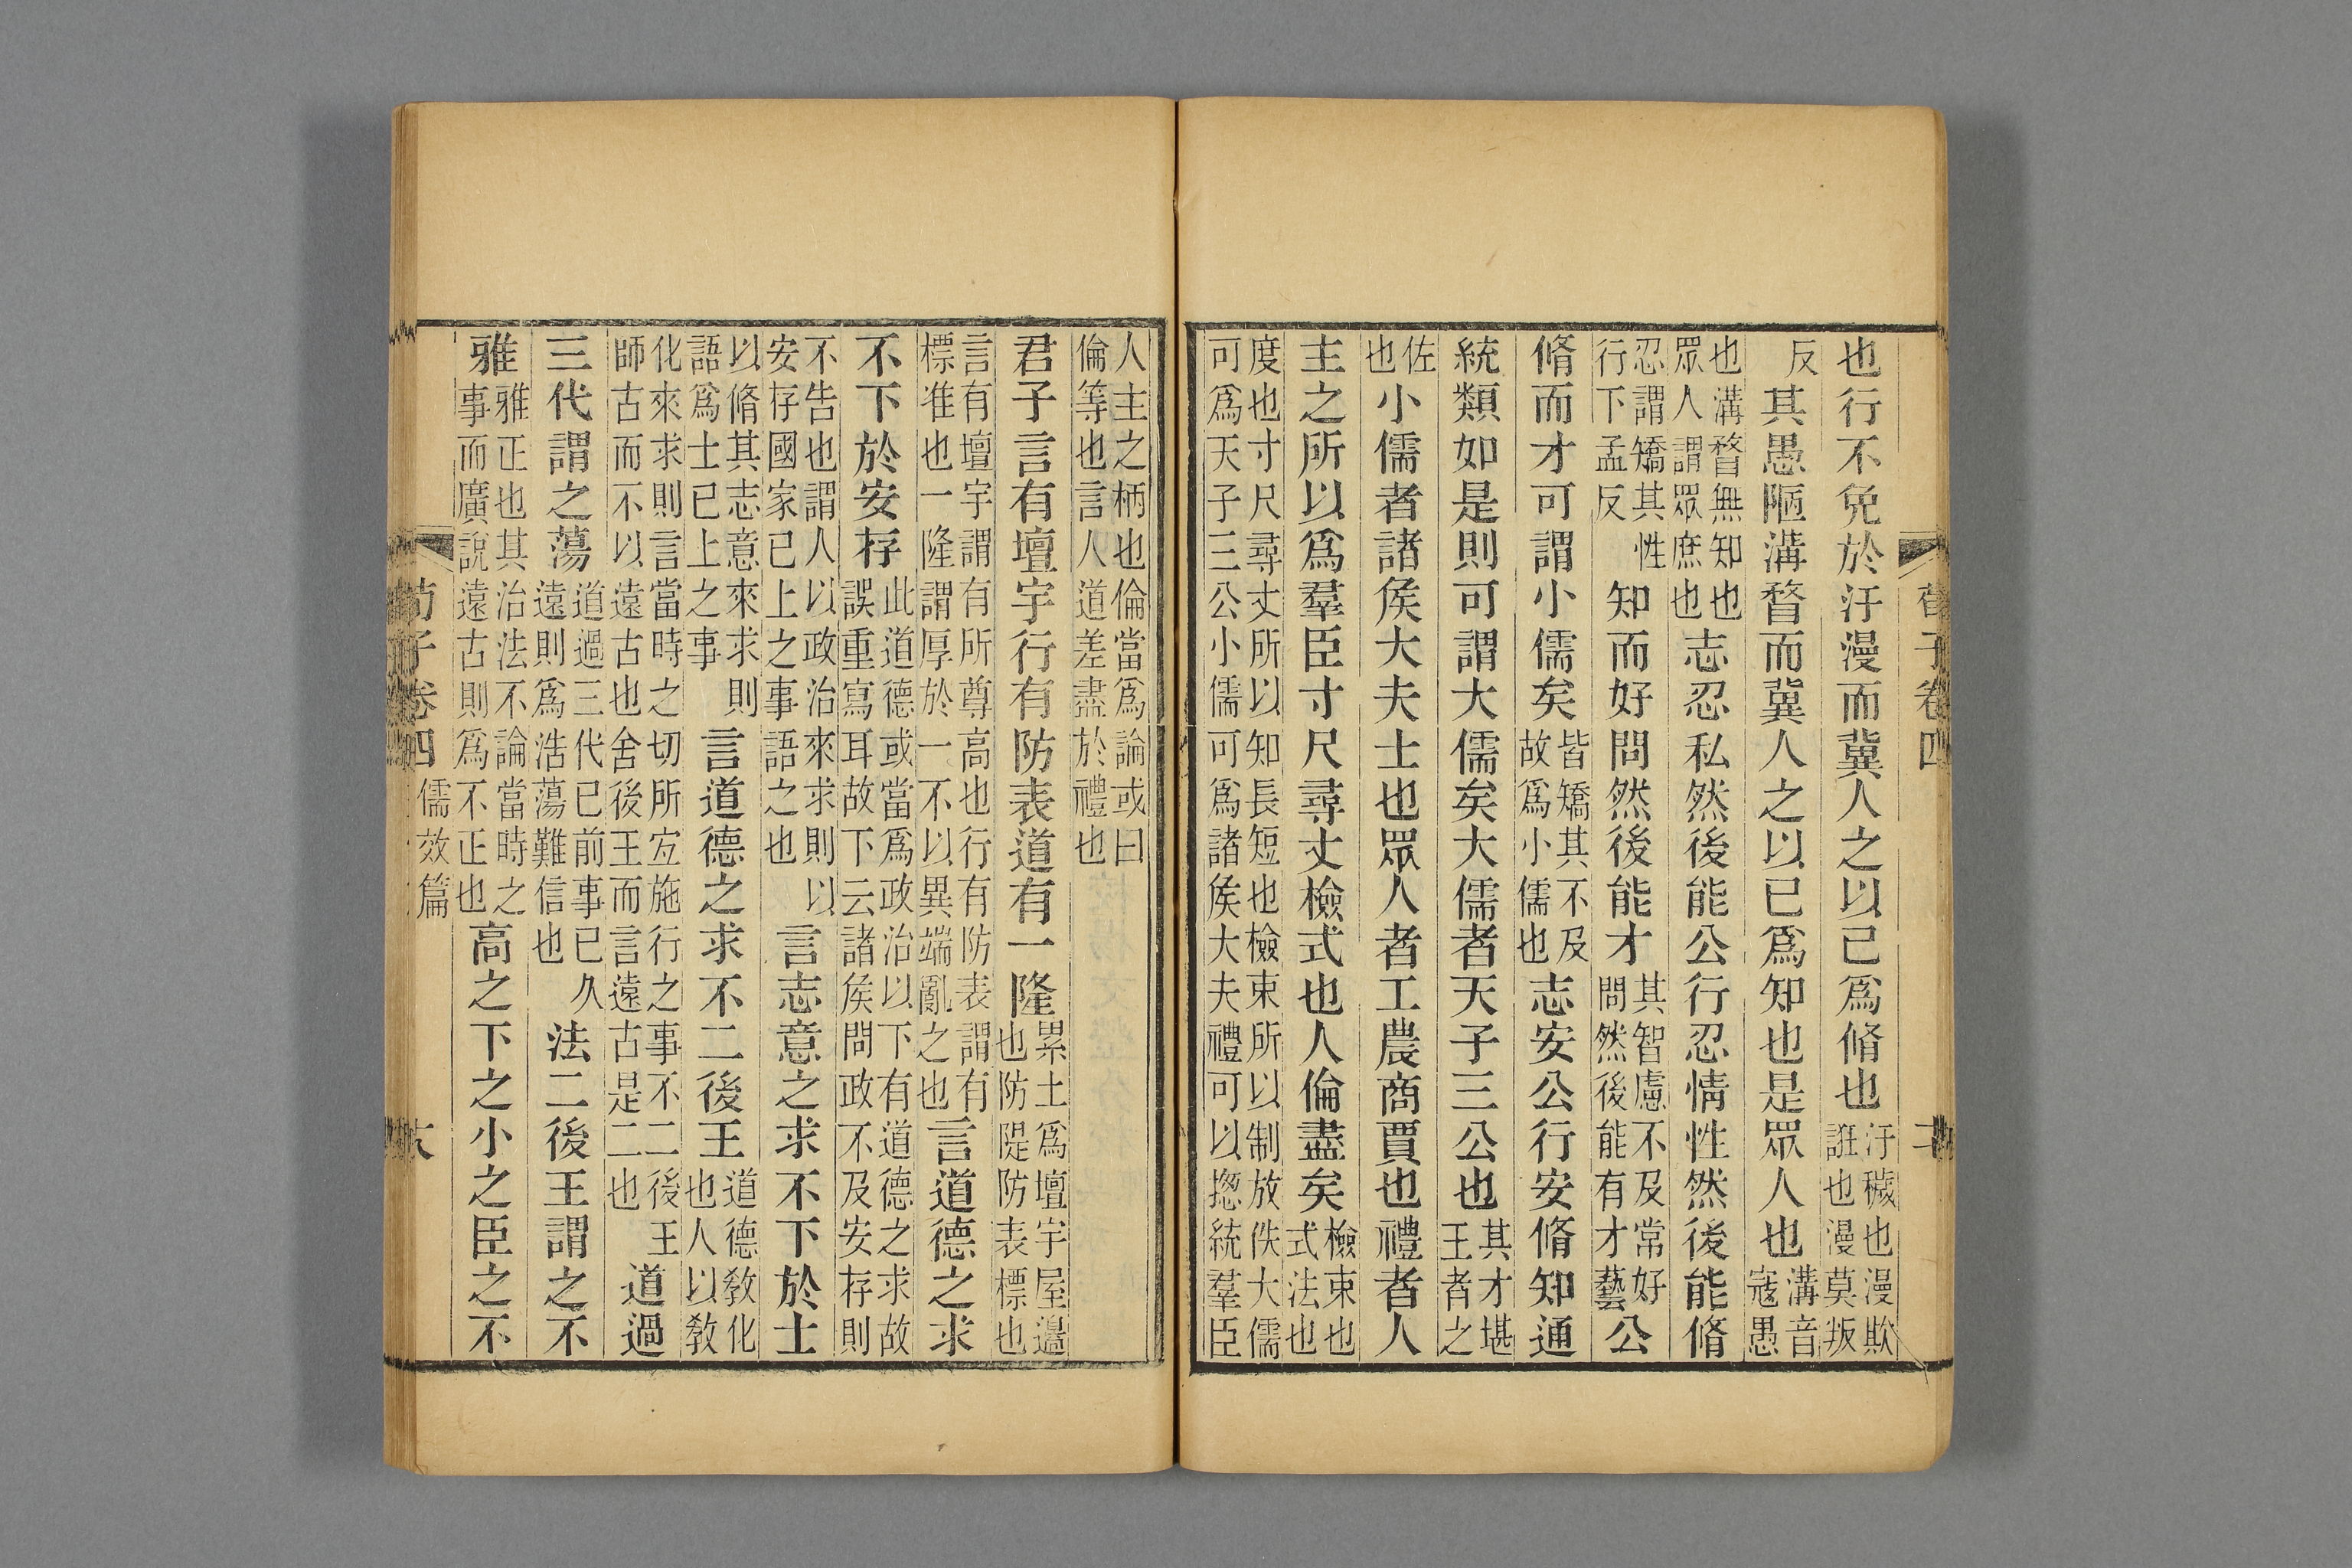 荀子卷四
也行不免於汙漫而冀人之以己爲脩也汙穢也漫欺誑也漫莫叛
反其愚陋溝瞀而冀人之以己爲知也是眾人也溝音寇愚
也溝瞀無知也眾人謂眾庶也志忍私然後能公行忍情性然後能脩
忍謂矯其性行下孟反知而好問然後能才其智慮不及常好問然後能有才藝公
脩而才可謂小儒矣皆矯其不及故爲小儒也志安公行安脩知通
統類如是則可謂大儒矣大儒者天子三公也其才堪王者之
佐也小儒者諸矦大夫士也眾人者工農商賈也禮者人
主之所以爲羣臣寸尺尋丈檢式也人倫盡矣檢束也式法也
度也寸尺尋丈所以知長短也檢束所以制放佚大儒可爲天子三公小儒可爲諸矦大夫禮可以揔統羣臣
人主之柄也倫當爲論或曰倫等也言人道差盡於禮也
君子言有壇宇行有防表道有一隆累土爲壇宇屋邊也防隄防表標也
言有壇宇謂有所尊高也行有防表謂有標准也一隆謂厚於一不以異端亂之也言道德之求
不下於安存此道德或當爲政治以下有道德之求故誤重寫耳故下云諸矦問政不及安存則
不告也謂人以政治來求則以安存國家已上之事語之也言志意之求不下於士
以脩其志意來求則語爲士已上之事言道德之求不二後王道德敎化也人以敎
化來求則言當時之切所宐施行之事不二後王師古而不以遠古也舍後王而言遠古是二也道過
三代謂之蕩道過三代已前事已久遠則爲浩蕩難信也法二後王謂之不
雅雅正也其治法不論當時之事而廣說遠古則爲不正也高之下之小之臣之不
荀子卷四 儒效篇